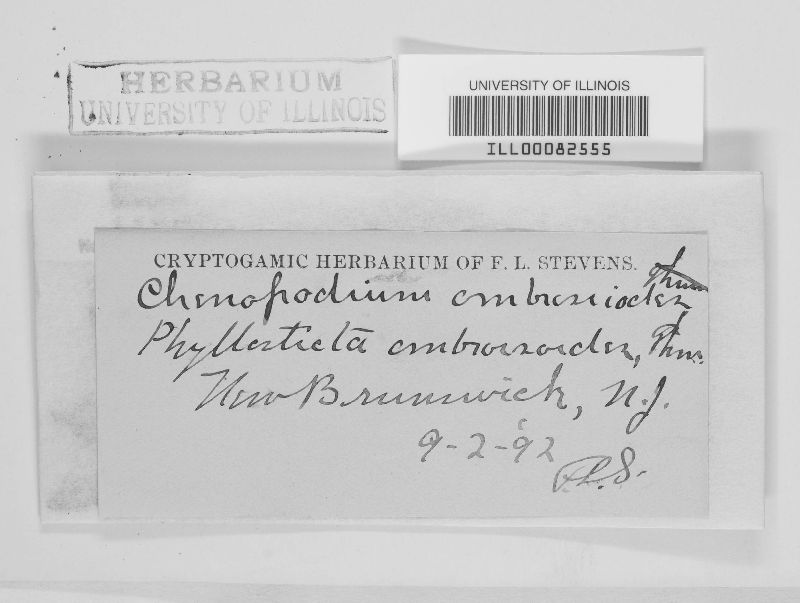 HERBARIUM
UNIVERSITY OF ILLINOIS
UNIVERSITY OF ILLINOIS
ILL00082555
CRYPTOGAMIC HERBARIUM OF F. L. STEVENS.
Chenopodium ambrosioides, Thum
Phyllosticta ambrosioides, Thm.
New Brunswick, N.J.
9-2-'92
F.L.S.